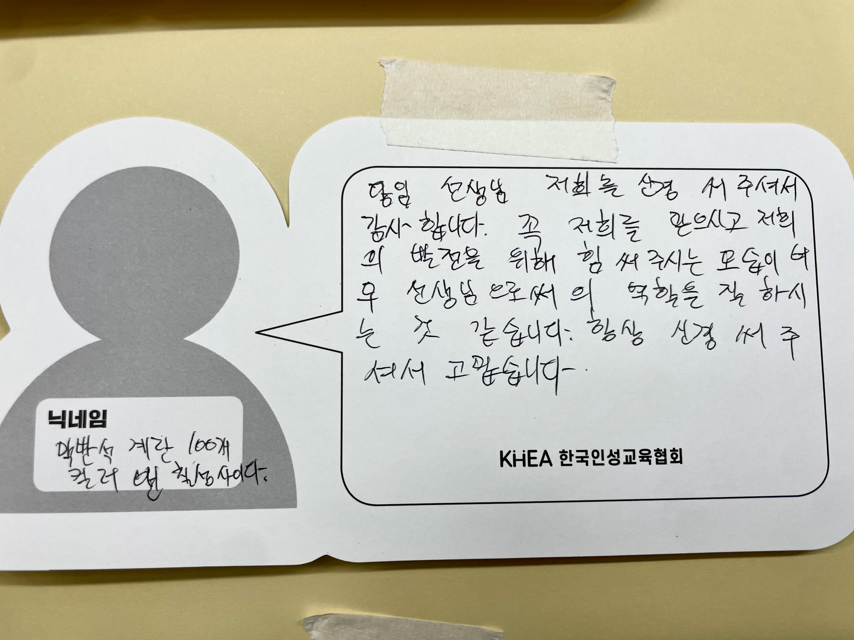 담임 선생님 저희를 신경 써 주셔서
감사합니다. 꼭 저희를 믿으시고 저희
의 발전을 위해 힘 써 주시는 모습이 너
무 선생님으로써의 역할을 잘 하시
는 것 같습니다. 항상 신경 써 주
셔서 고맙습니다.
KHEA 한국인성교육협회
닉네임
맥반석 계란 100개
칠성사이다.